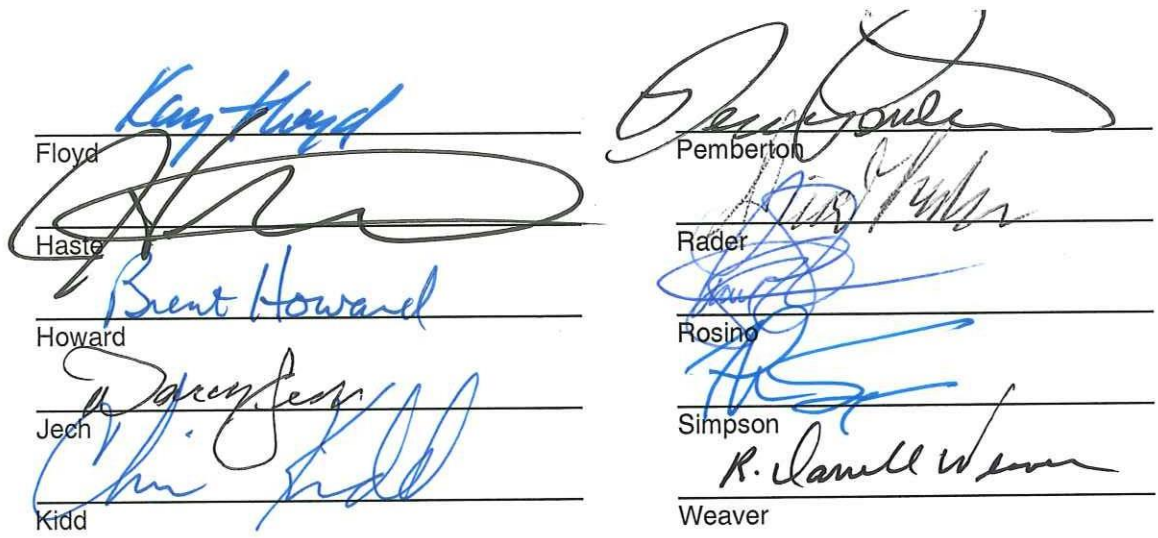 Kay Floyd
Floyd
Haste
Brent Howard
Howard
Darcy Jech
Jech
Chris Kidd
Kidd
Pemberton
Rader
Rosino
Simpson
R. Darrell Weaver
Weaver